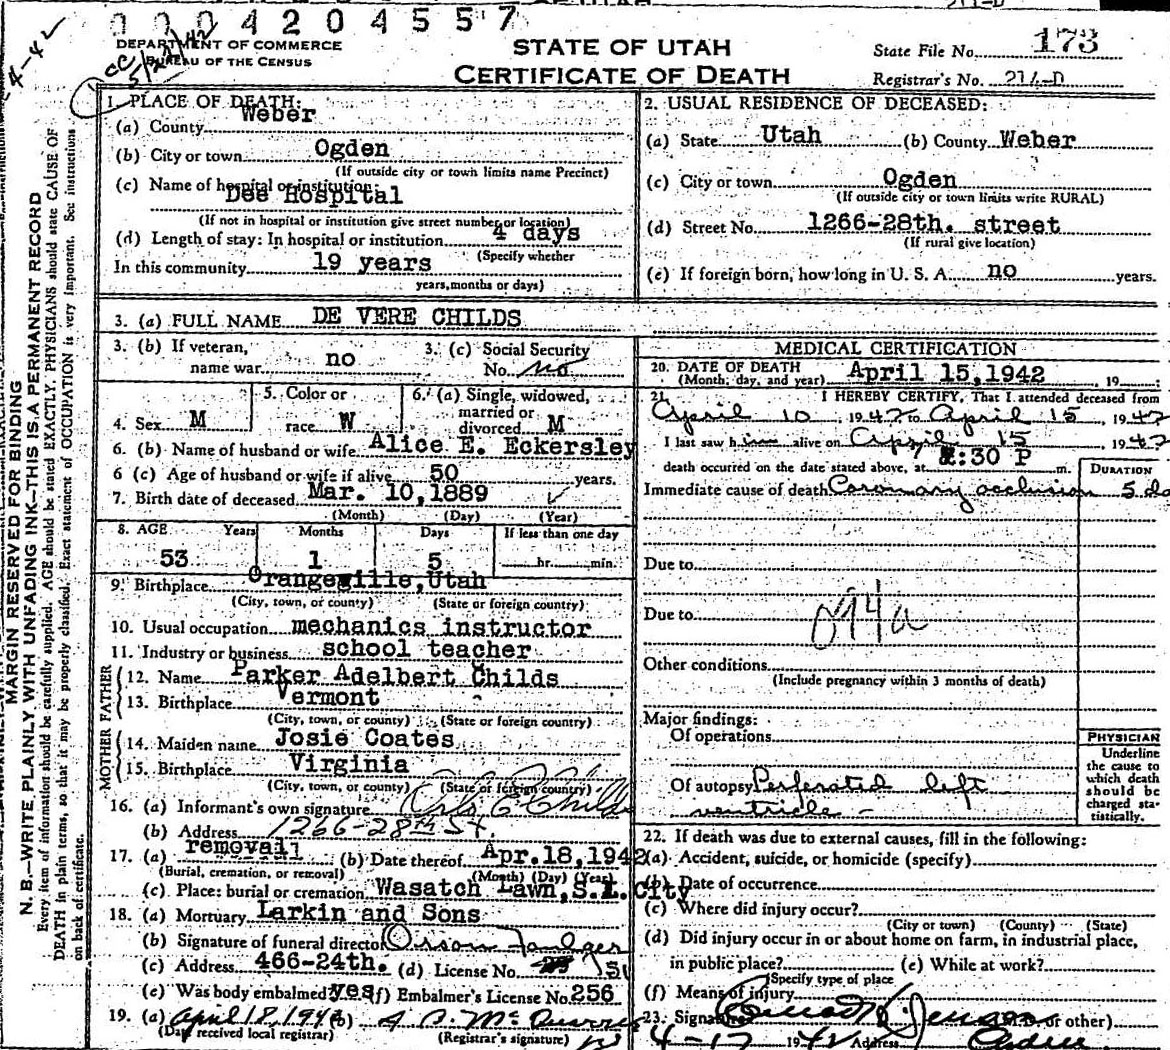 0 0 0 4 2 0 4 5 5 7
DEPARTMENT OF COMMERCE
BUREAU OF THE CENSUS
STATE OF UTAH
CERTIFICATE OF DEATH
State File No. 173
Registrar's No. 214-D
MARGIN RESERVED FOR BINDING
N. B.—WRITE PLAINLY WITH UNFADING INK—THIS IS A PERMANENT RECORD
Every item of information should be carefully supplied. AGE should be stated EXACTLY. PHYSICIANS should state CAUSE OF
DEATH in plain terms, so that it may be properly classified. Exact statement of OCCUPATION is very important. See instructions
on back of certificate.
1. PLACE OF DEATH:
(a) County Weber
(b) City or town Ogden
(If outside city or town limits name Precinct)
(c) Name of hospital or institution:
Dee Hospital
(If not in hospital or institution give street number or location)
(d) Length of stay: In hospital or institution 4 days
(Specify whether
In this community 19 years
years, months or days)
2. USUAL RESIDENCE OF DECEASED:
(a) State Utah (b) County Weber
(c) City or town Ogden
(If outside city or town limits write RURAL)
(d) Street No. 1266-28th. street
(If rural give location)
(e) If foreign born, how long in U. S. A. no years.
3. (a) FULL NAME DE VERE CHILDS
3. (b) If veteran, name war no
3. (c) Social Security No. no
4. Sex M
5. Color or race W
6. (a) Single, widowed, married or divorced M
6. (b) Name of husband or wife Alice E. Eckersley
6 (c) Age of husband or wife if alive 50 years.
7. Birth date of deceased Mar. 10,1889
(Month) (Day) (Year)
8. AGE Years Months Days If less than one day
53 1 5 hr. min.
9. Birthplace Orangeville,Utah
(City, town, or county) (State or foreign country)
10. Usual occupation mechanics instructor
11. Industry or business school teacher
FATHER
12. Name Parker Adelbert Childs
13. Birthplace Vermont
(City, town, or county) (State or foreign country)
MOTHER
14. Maiden name Josie Coates
15. Birthplace Virginia
(City, town, or county) (State or foreign country)
16. (a) Informant's own signature Childs
(b) Address 1266-28th St.
17. (a) removal (b) Date thereof Apr.18,1942
(Burial, cremation, or removal) (Month) (Day) (Year)
(c) Place: burial or cremation Wasatch Lawn,S.L.City
18. (a) Mortuary Larkin and Sons
(b) Signature of funeral director Orson
(c) Address 466-24th. (d) License No.
(e) Was body embalmed? yes (f) Embalmer's License No. 256
19. (a) April 18, 1942 (b)
(Date received local registrar) (Registrar's signature)
MEDICAL CERTIFICATION
20. DATE OF DEATH
(Month, day, and year) April 15,1942, 19
21. I HEREBY CERTIFY, That I attended deceased from
April 10, 1942, to April 15, 1942
I last saw him alive on April 15, 1942
death occurred on the date stated above, at :30 P m.
DURATION
Immediate cause of death Coronary occlusion 5 da
Due to
Due to
94a
Other conditions
(Include pregnancy within 3 months of death)
Major findings:
Of operations
Of autopsy Perforated left
ventricle -
PHYSICIAN
Underline
the cause to
which death
should be
charged sta-
tistically.
22. If death was due to external causes, fill in the following:
(a) Accident, suicide, or homicide (specify)
(b) Date of occurrence
(c) Where did injury occur?
(City or town) (County) (State)
(d) Did injury occur in or about home on farm, in industrial place,
in public place? (e) While at work?
(Specify type of place
(f) Means of injury
23. Signature (M.D. or other)
4-17 1942 Address Ogden